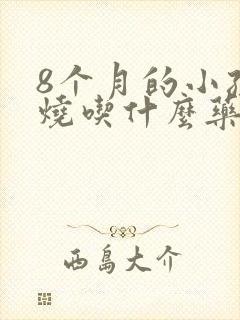 8个月的小孩
燒喫什麼藥
西島大介